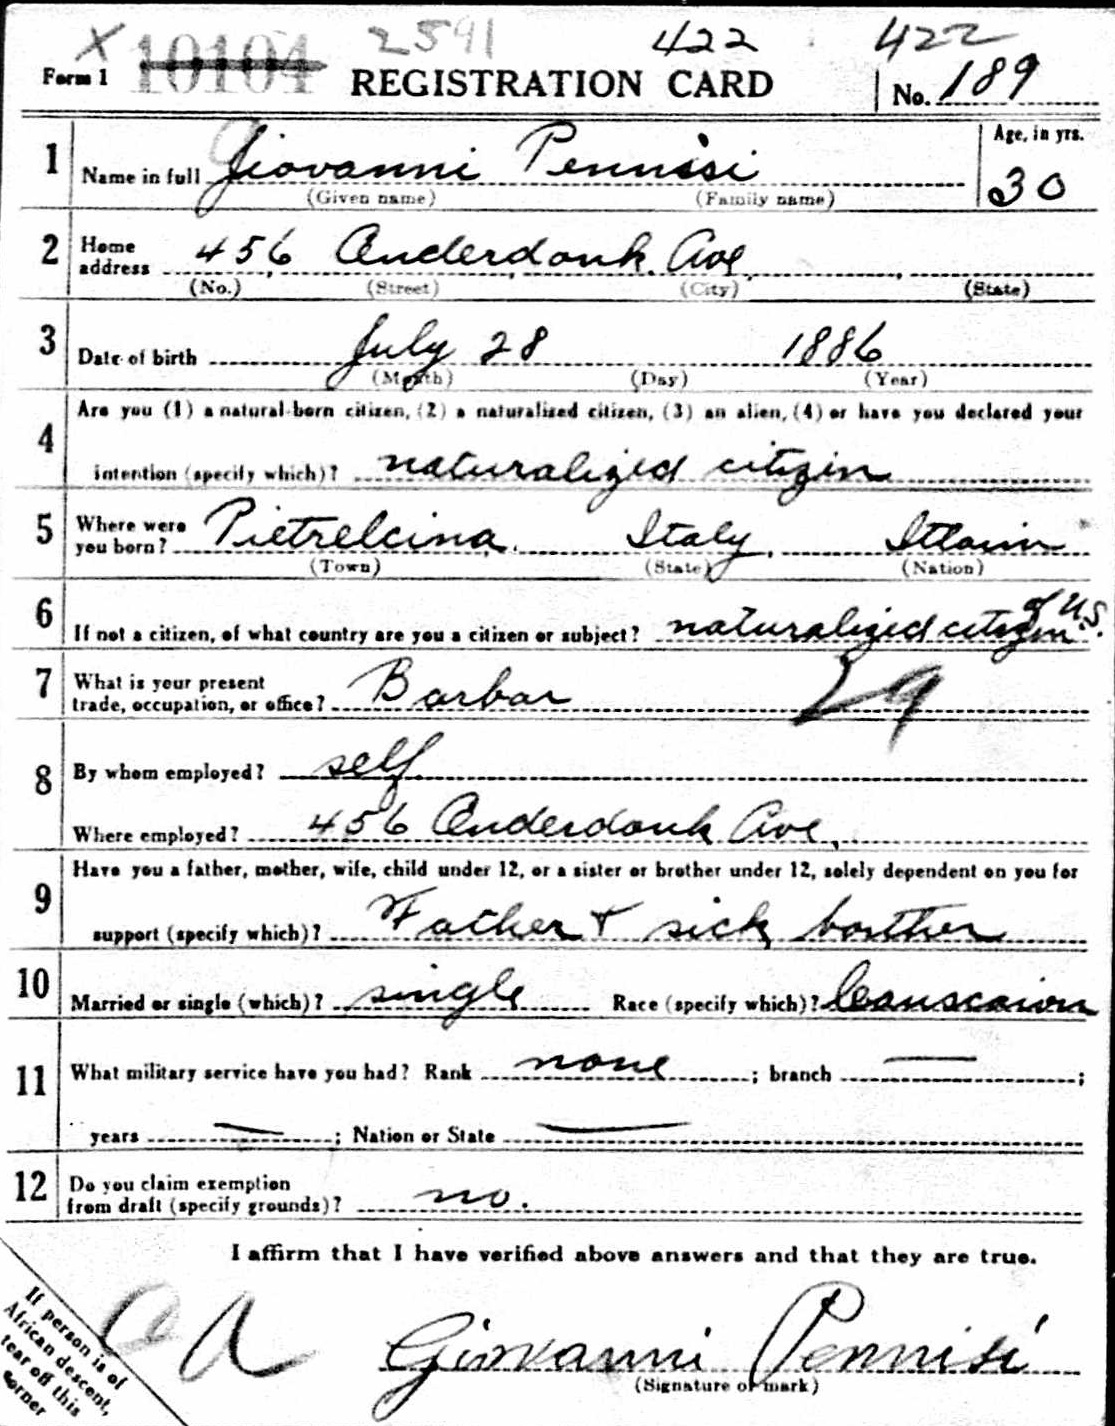 X 10104 2591 422 422
Form 1 REGISTRATION CARD No. 189
1 Name in full Giovanni Pennisi Age, in yrs. 30
(Given name) (Family name)
2 Home address 456 Onderdonk Ave
(No.) (Street) (City) (State)
3 Date of birth July 28 1886
(Month) (Day) (Year)
4 Are you (1) a natural-born citizen, (2) a naturalized citizen, (3) an alien, (4) or have you declared your
intention (specify which)? naturalized citizin
5 Where were you born? Pietrelcina, Italy,
(Town) (State) (Nation)
6 If not a citizen, of what country are you a citizen or subject? naturalized citizin of U.S.
7 What is your present trade, occupation, or office? Barbar 29
8 By whom employed? self
Where employed? 456 Onderdonk Ave,
9 Have you a father, mother, wife, child under 12, or a sister or brother under 12, solely dependent on you for
support (specify which)? Father + sick borther
10 Married or single (which)? single Race (specify which)?
11 What military service have you had? Rank none ; branch — ;
years — ; Nation or State —
12 Do you claim exemption from draft (specify grounds)? no.
I affirm that I have verified above answers and that they are true.
If person is of
African descent,
tear off this
corner
Giovanni Pennisi
(Signature or mark)